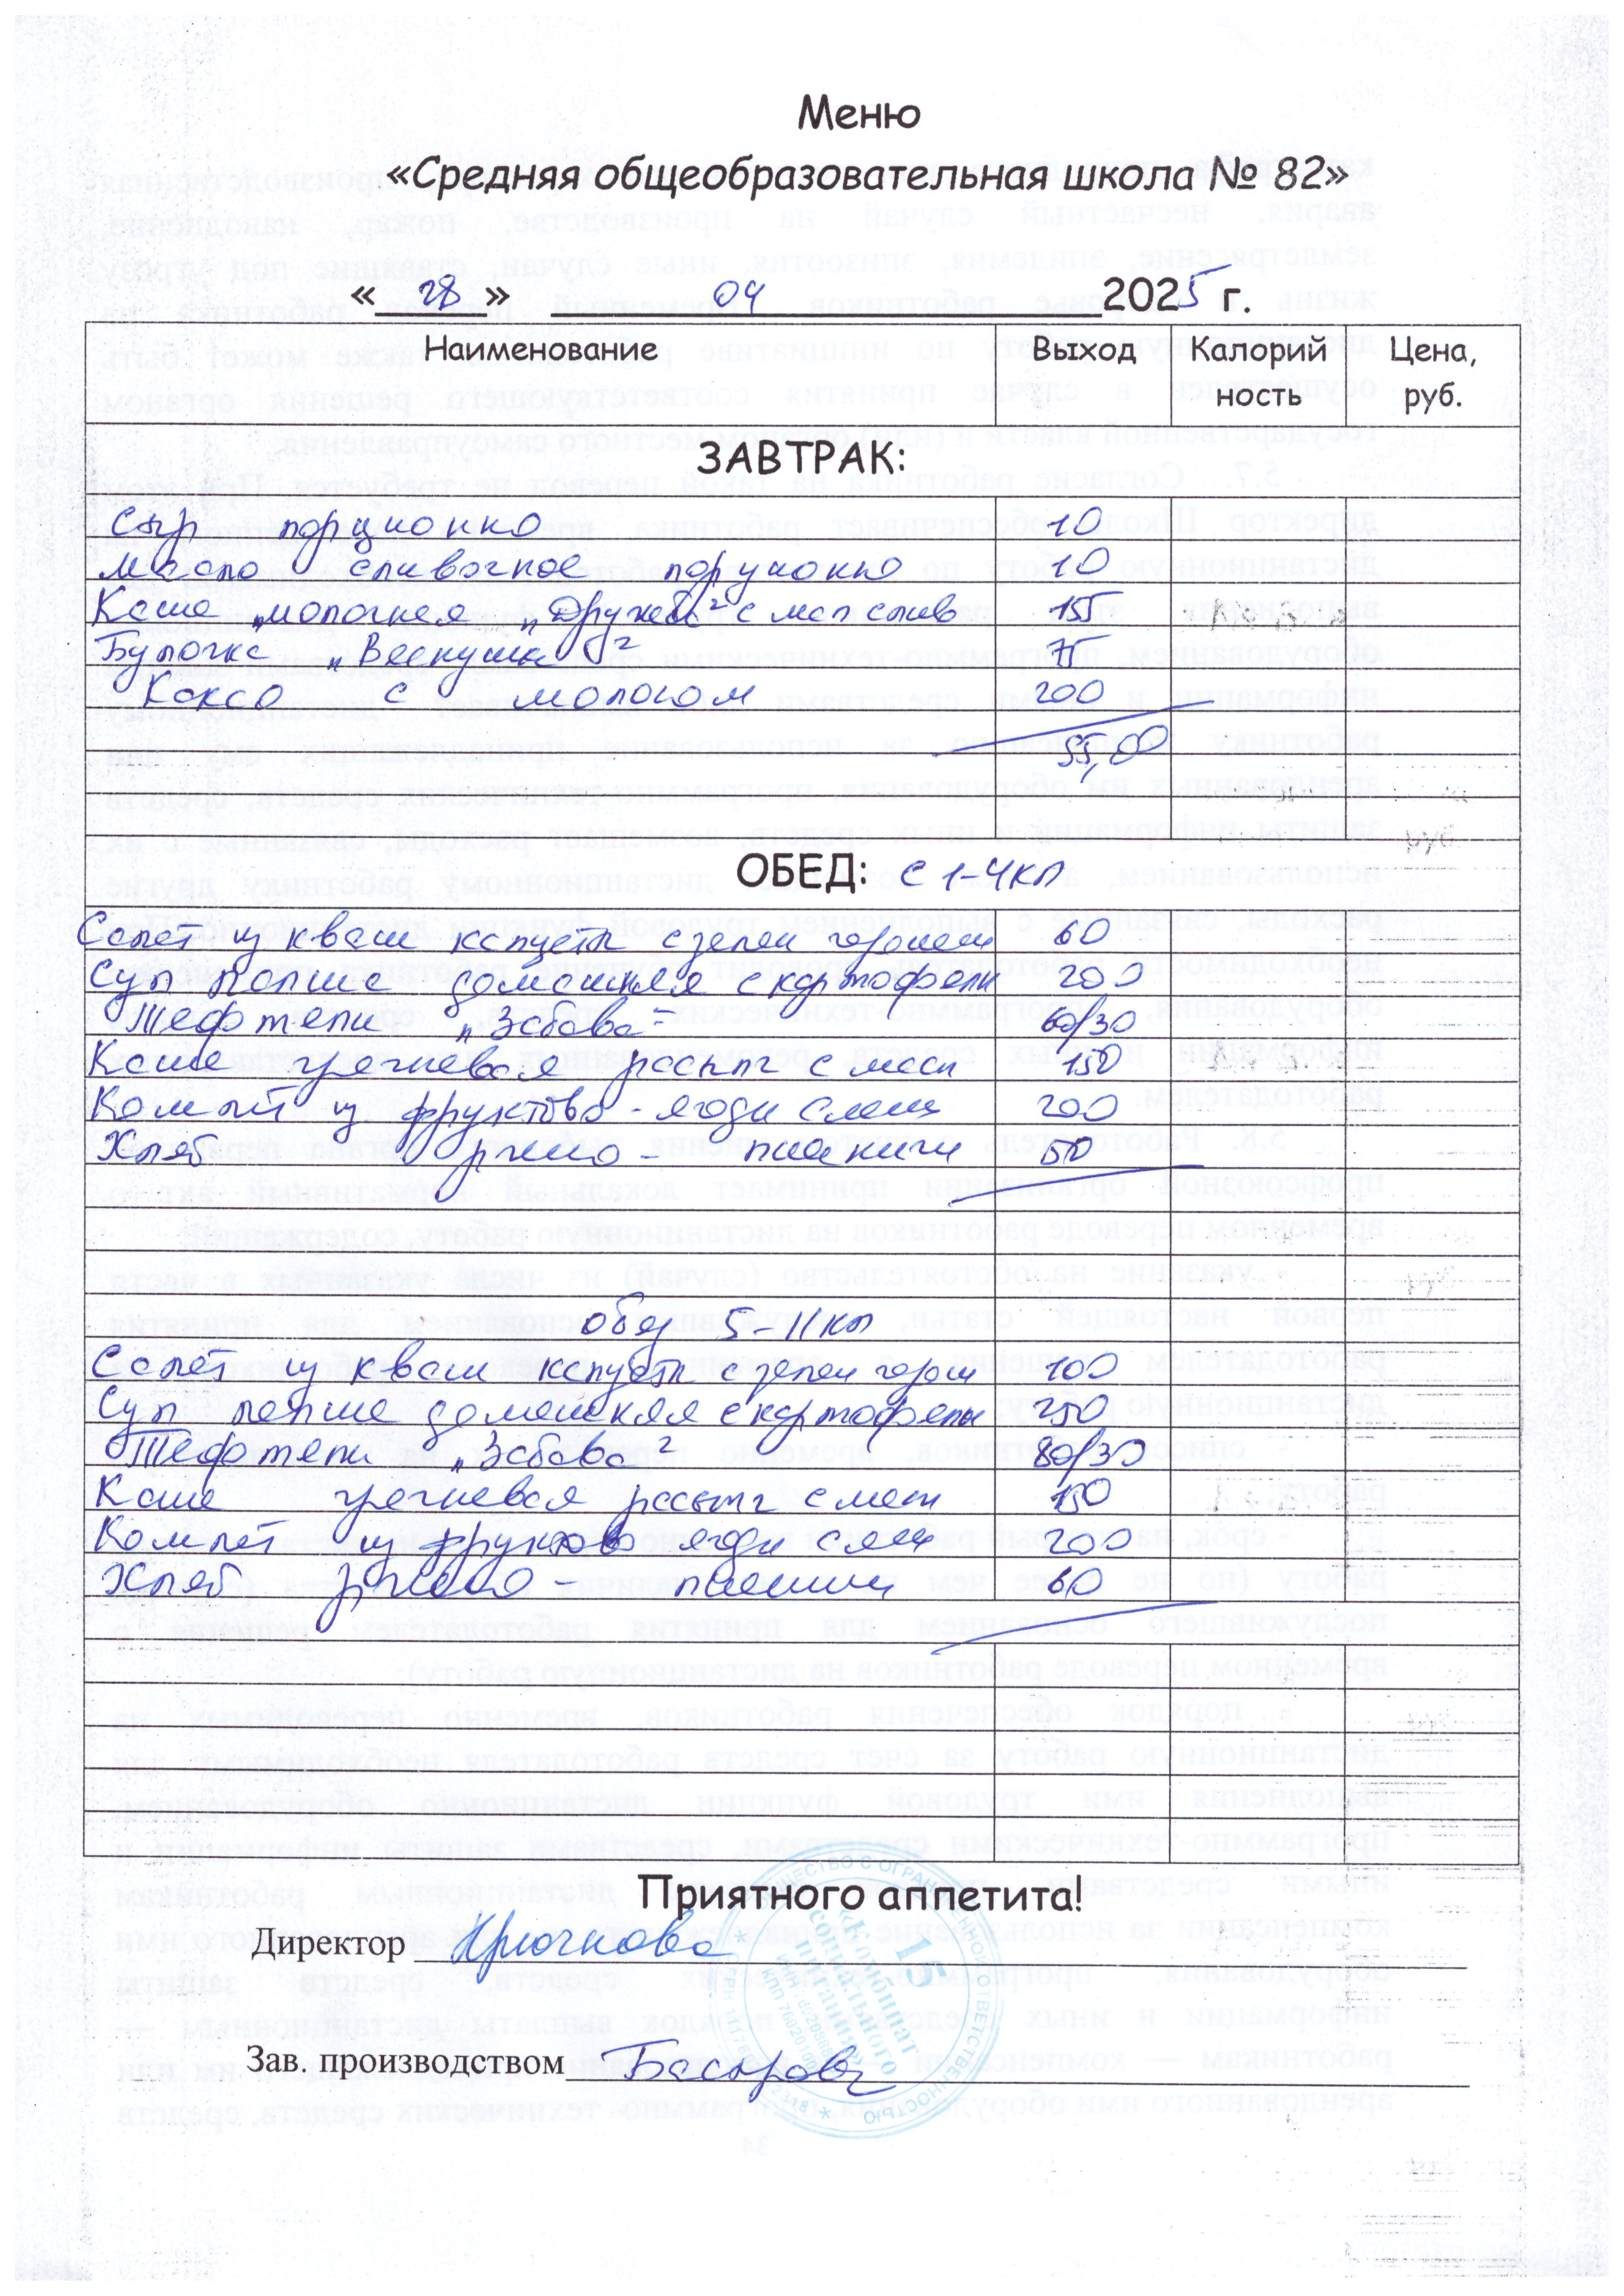 Меню
«Средняя общеобразовательная школа № 82»
« 28 » 04 2025 г.
Наименование Выход Калорий ность Цена, руб.
ЗАВТРАК:
Сыр порционно 10
Масло сливочное порционно 10
Каша „молочная „Дружба“ с масл слив 155
Булочка „Веснушка“ 75
Какао с молоком 200
55,00
ОБЕД: с 1-4 кл
Салат из кваш капусты с зелен горошком 60
Суп лапша домашняя с картофелем 200
Тефтели „Забава“ 60/30
Каша гречневая рассып с масл 150
Компот из фруктово - ягодн смеси 200
Хлеб ржано - пшеничн 50
Обед 5-11 кл
Салат из кваш капусты с зелен горош 100
Суп лапша домашняя с картофелем 250
Тефтели „Забава“ 80/30
Каша гречневая рассып с масл 150
Компот из фруктово ягодн смеси 200
Хлеб ржано - пшеничн 60
Приятного аппетита!
Директор Крючкова
Зав. производством
ОБЩЕСТВО С ОГРАНИЧЕННОЙ ОТВЕТСТВЕННОСТЬЮ
15
«Комбинат
социального
питания»